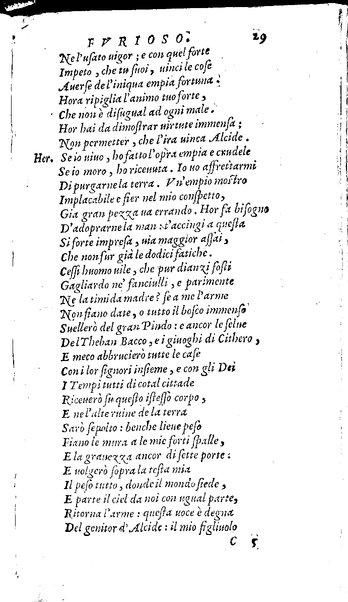 FVRIOSO. 29
Ne l'usato uigor; e con quel forte
Impeto, che tu suoi, uinci le cose
Auerse de l'iniqua empia fortuna:
Hora ripiglia l'animo tuo forte,
Che non è disugual ad ogni male.
Hor hai da dimostrar uirtute immensa;
Non permetter, che l'ira uinca Alcide.
Her. Se io uiuo, ho fatto l'opra empia e crudele
Se io moro, ho riceuuta. Io uo affrettarmi
Di purgarne la terra. Vn'empio mostro
Implacabile e fier nel mio conspetto,
Gia gran pezza ua errando. Hor fa bisogno
D'adoprarne la man: t'accingi a questa
Si forte impresa, uia maggior assai,
Che non fur già le dodici fatiche.
Cessi huomo uile, che pur dianzi fosti
Gagliardo ne' fanciulli, e parimente
Ne la timida madre? se a me l'arme
Non fiano date, o tutto il bosco immenso
Suellerò del gran Pindo: e ancor le selue
Del Theban Bacco, e i giuoghi di Cithero,
E meco abbrucierò tutte le case
Con i lor signori insieme, e con gli Dei
I Tempi tutti di cotal cittade
Riceuerò su questo istesso corpo,
E ne l'alte ruine de la terra
Sarò sepolto: benche lieue peso
Fiano le mura a le mie forti spalle,
E la grauezza ancor di sette porte:
E uolgerò sopra la testa mia
Il peso tutto, donde il mondo siede,
E parte il ciel da noi con ugual parte,
Ritorna l'arme: questa uoce è degna
Del genitor d'Alcide: il mio figliuolo
C 5